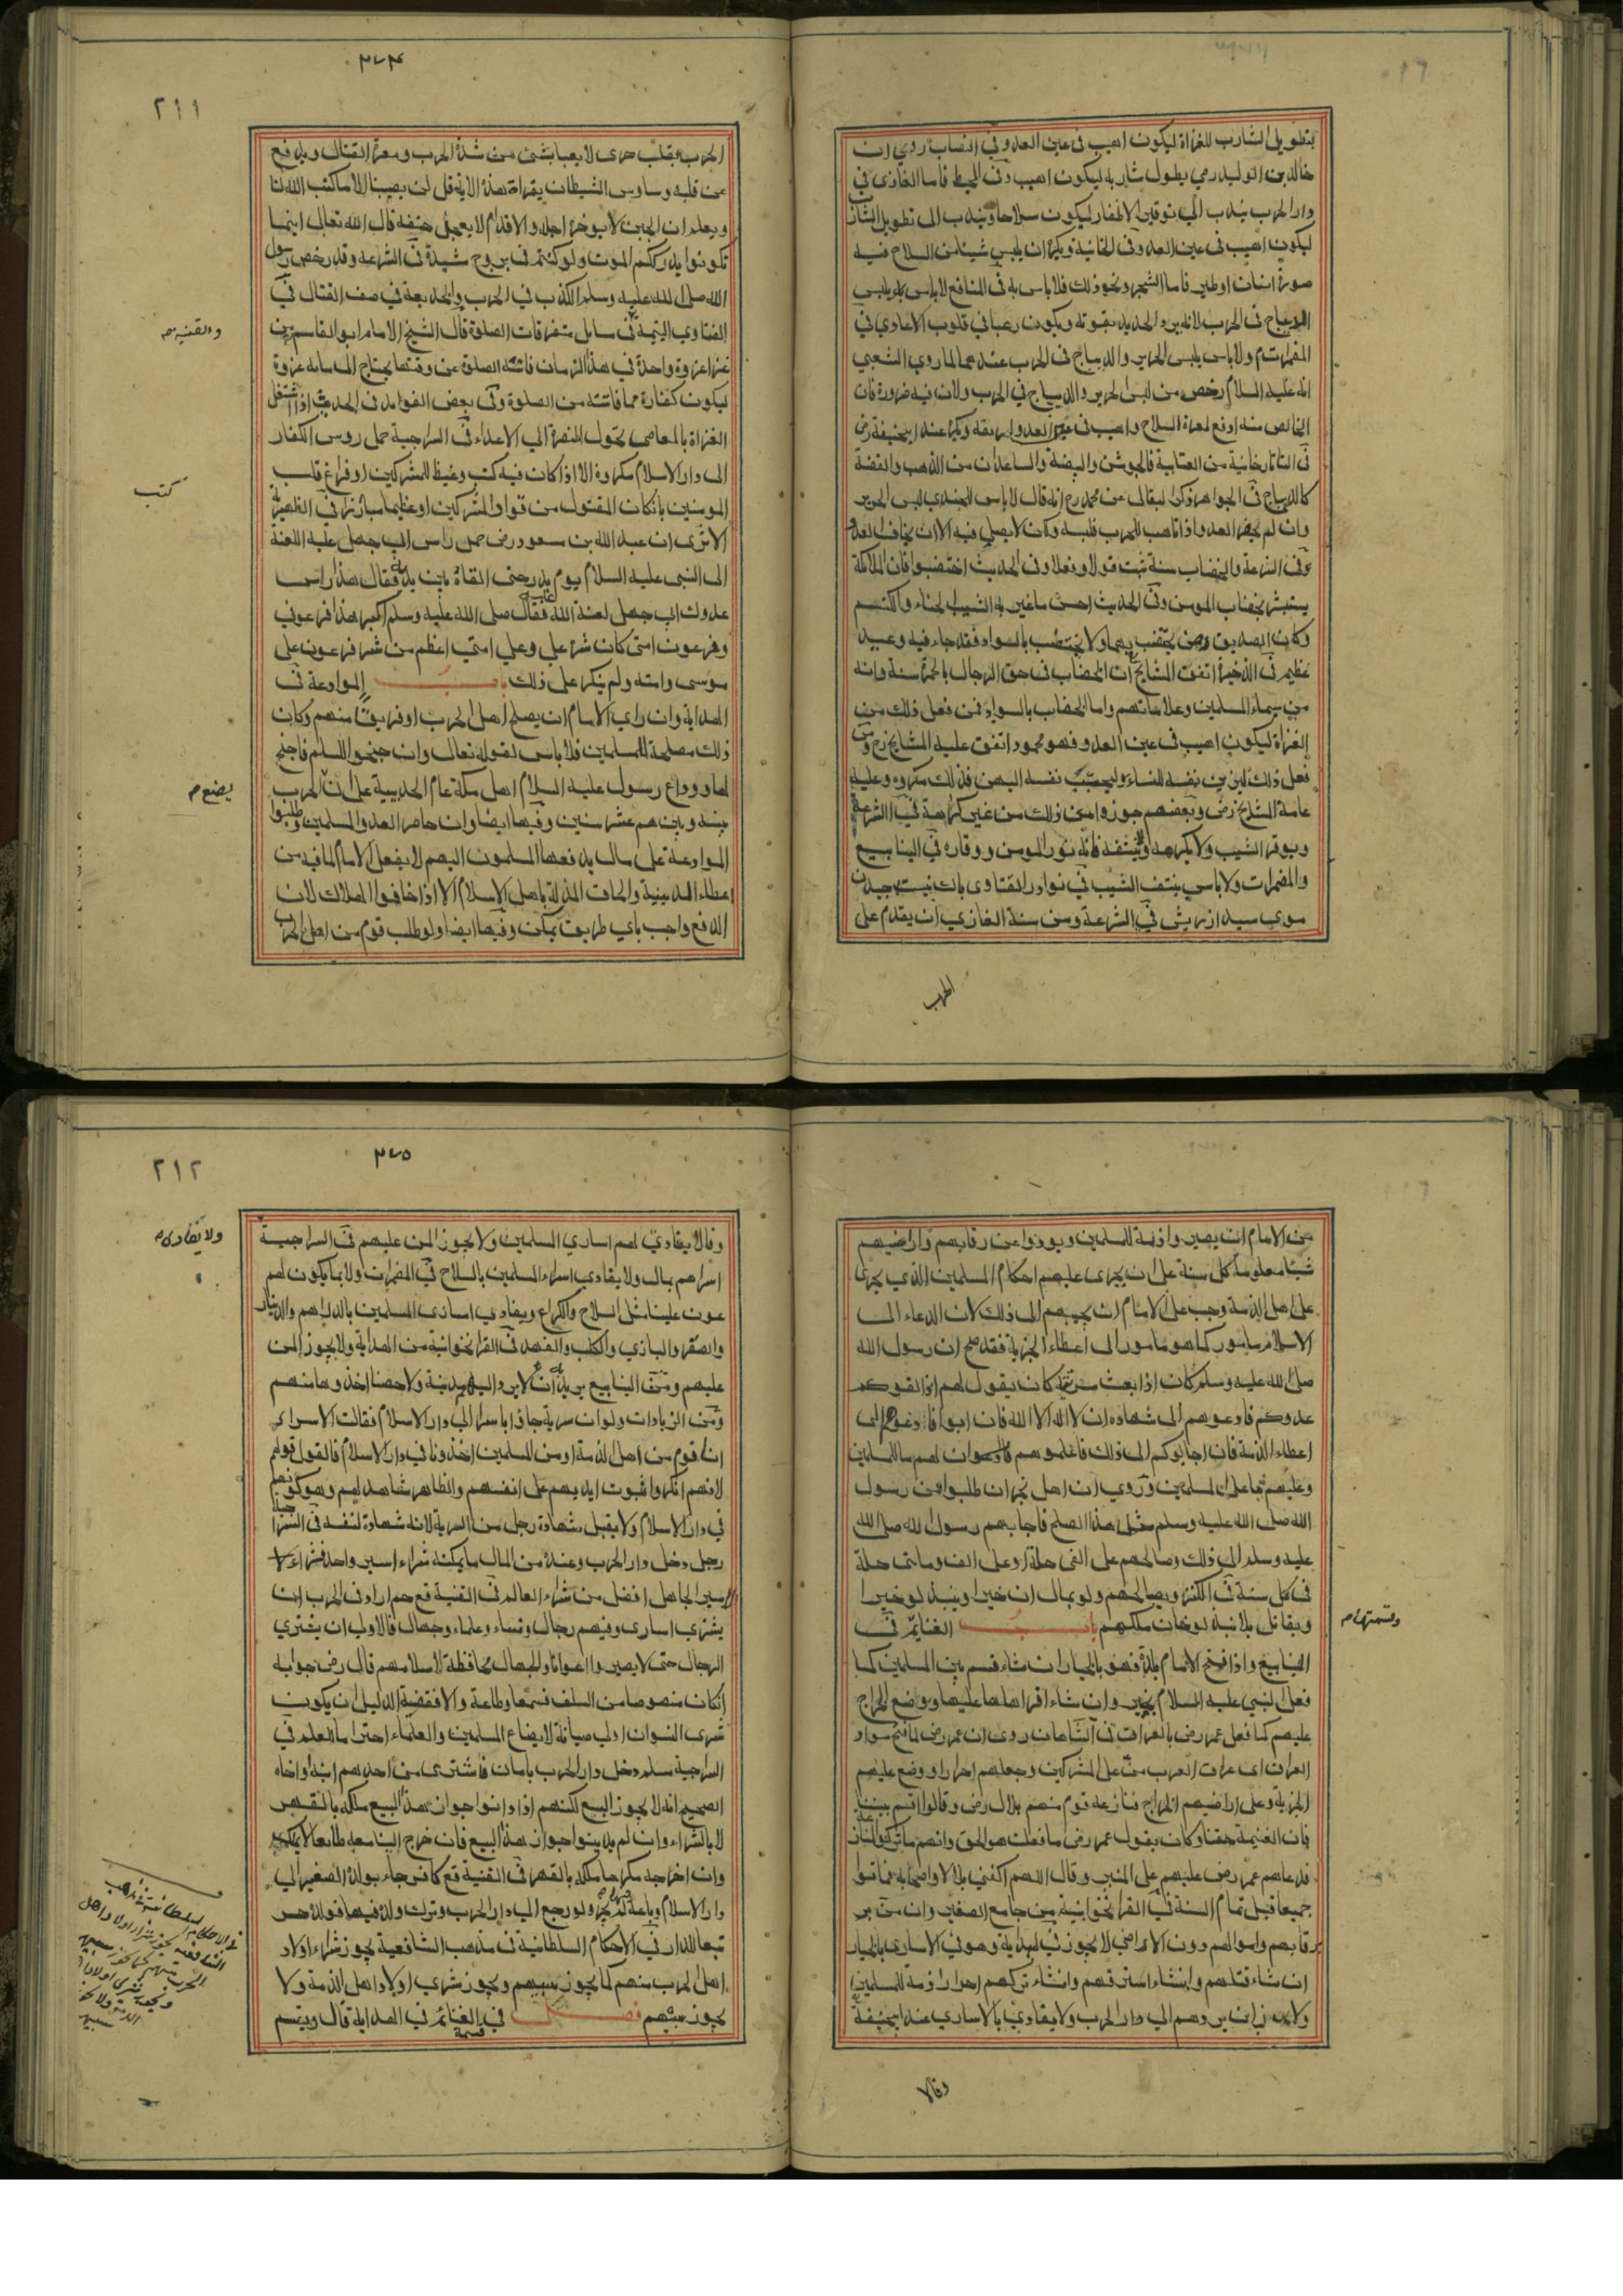 بتطويل الشارب للغزاة ليكون اهيب فى عين العدو وفي النصاب روي ان
خالد بن الوليد رضي يطول شاربه ليكون اهيب وفى المحيط فاما الغازى فى
دار الحرب يندب الي توفير الاظفار ليكون سلاحا ويندب الى تطويل الشارب
ليكون اهيب فى عين العدو وفى الخانية ويكره ان يلبس شيئا من السلاح فيه
صورة انسان او طير فاما الشجر ونحو ذلك فلا باس به فى المنافع لا باس بلبس
الديباج فى الحرب لانه يرد الحديد بقوته ويكون رعبا في قلوب الاعادي في
المضمرات ولا باس بلبس الحرير والديباج فى الحرب عندهما لما روي الشعبي
انه عليه السلام رخص من لبس الحرير والديباج في الحرب ولان فيه ضرورة فان
الخالص منه ادفع لمعرة السلاح واهيب فى عين العدو لبريقه ويكره عند ابيحنيفة رض
فى التاتارخانية من العتابية فالجوشن والبيضة والساعدان من الذهب والفضة
كالديباج فى الجواهر ذكر البقالى عن محمد رح انه قال لا باس للجندي لبس الحرير
وان لم يحضر العدو اذا تاهب للحرب فلبسه وكان لا يصلي فيه الا ان يخاف العدو
وفى الشرعة والخضاب سنة ثبت قولا وفعلا وفى الحديث اختضبوا فان الملائكة
يستبشر بخضاب المومن وفى الحديث احسن ما غير به الشيب الحناء والكتم
وكان الصديق رض يختضب بهما ولا يختضب بالسواد فقد جاء فيه وعيد
عظيم فى الذخيرة اتفق المشايخ ان الخضاب فى حق الرجال بالحمرة سنة وانه
من سيماء المسلمين وعلاماتهم واما الخضاب بالسواد فمن فعل ذلك من
الغزاة ليكون اهيب فى عين العدو فهو محمود اتفق عليه المشايخ رح ومن
فعل ذلك ليزين نفسه للنساء وليحبب نفسه اليهن فذلك مكروه وعليه
عامة المشايخ رض وبعضهم جوزوا من ذلك من غير كراهة فى الشرعة
ويوقر الشيب ولا يكرهه ولا ينتفه فانه نور المومن ووقاره في الينابيع
والمضمرات ولا باس بنتف الشيب فى نوادر الفتاوى باك نيست چيدن
موى سپيد از ريش في الشرعة ومن سنة الغازي ان يقدم على
الحرب
٣٧٤
٢١١
الحرب بقلب جرى لا يعبا بشى من شدة الحرب ومعرة القتال ويدفع
عن قلبه وساوس الشيطان بقراءة هذه الاية قل لن يصيبنا الا ما كتب الله لنا
ويعلم ان الجبن لا يوخر اجله والاقدام لا يعجل حتفه قال الله تعالى اينما
تكونوا يدرككم الموت ولو كنتم فى بروج مشيدة فى الشرعة وقد رخص رسول
الله صلى الله عليه وسلم الكذب في الحرب والخديعة في صف القتال في
الفتاوي اليتيمة فى مسايل متفرقات الصلوة قال الشيخ الامام ابو القاسم من
والقنيه
غزا غزوة واحدة في هذا الزمان فاتته الصلوة عن وقتها يحتاج الى مايه غزوة
ليكون كفارة مما فاتته من الصلوة وفى بعض الفوايد فى الحديث اذا اشتغل
الغزاة بالمعاصى تحول النصرة الي الاعداء فى السراجية حمل روس الكفار
الى دار الاسلام مكروه الا اذا كان فيه كبت وغيظ للمشركين او فراغ قلب
كتب
المومنين بانكان المقتول من قواد المشركين او عظيما مبارزا فى الظهيرية
الا ترى ان عبد الله بن مسعود رض حمل راس ابي جهل عليه اللعنة
الى النبى عليه السلام يوم بدر حتى القاه بين يديه فقال هذا راس
عدوك ابي جهل لعنة الله فقال صلى الله عليه وسلم الله اكبر هذا فرعوني
وفرعون امتى كان شره علي وعلي امتي اعظم من شر فرعون على
موسى وامته ولم ينكر على ذلك باب الموادعة فى
الهداية وان راي الامام ان يصلح اهل الحرب او فريقا منهم وكان
ذلك مصلحة للمسلمين فلا باس لقوله تعالى وان جنحوا للسلم فاجنح
لها ووادع رسول عليه السلام اهل مكة عام الحديبية على ان الحرب
يضع م
بينه وبينهم عشر سنين وفيها ايضا وان حاصر العدو المسلمين وطلبوا
الموادعة على مال يدفعها المسلمون اليهم لا يفعل الامام لما فيه من
اعطاء الدينية والحاق المذلة باهل الاسلام الا اذا خافوا الهلاك لان
الدفع واجب باي طريق يمكن وفيها ايضا ولو طلب قوم من اهل الحرب
من الامام ان يصيروا ذمة للمسلمين ويودوا عن رقابهم واراضيهم
شيئا معلوما كل سنة على ان يجرى عليهم احكام المسلمين الذي يجرى
على اهل الذمة وجب على الامام ان يجيبهم الى ذلك لان الدعاء الى
الاسلام مامور كما هو مامور الى اعطاء الجزية فقد صح ان رسول الله
صلى الله عليه وسلم كان اذا بعث سرية كان يقول لهم اذا لقوكم
عدوكم فادعوهم الى شهادة ان لا اله الا الله فان ابوا فادعوهم الى
اعطاء الذمة فان اجابوكم الى ذلك فاعلموهم ان لهم ما للمسلمين
وعليهم ما على المسلمين وروي ان اهل نجران طلبوا من رسول
الله صلى الله عليه وسلم مثل هذا الصلح فاجابهم رسول الله صلى الله
عليه وسلم الي ذلك وصالحهم على الفى حلة او على الف ومايتى حلة
فى كل سنة فى الكنز ويصالحهم ولو بمال ان خيرا وينبذ لو خيرا
ويقاتل بلا نبذ لو خان ملكهم باب الغنايم فى
وقسمتها م
الينابيع واذا فتح الامام بلدة فهو بالخيار ان شاء قسم بين المسلمين كما
فعل النبي عليه السلام بخيبر وان شاء اقر اهلها عليها ووضع الخراج
عليهم كما فعل عمر رض بالعراق فى الشاهان روى ان عمر رض لما فتح سواد
العراق اى عراق العرب من على المشركين وجعلهم احرارا ووضع عليهم
الجزية وعلى اراضيهم الخراج فنازعه قوم منهم بلال رض وقالوا اقسم بيننا
فان الغنيمة حقنا وكان يقول عمر رض ما فعلت هو الحق وانهم ما تركوا المنازعة
فدعاهم عمر رض عليهم على المنبر وقال اللهم اكفنى بلالا واصحابه فماتوا
جميعا قبل تمام السنة فى القراخوانية من جامع الصغير وان من بر
رقابهم واموالهم دون الاراضي لا يجوز في الهداية وهو في الاسارى بالخيار
ان شاء قتلهم وان شاء استرقهم وان شاء تركهم احرارا ذمة للمسلمين
ولا يجوز ان يردهم الي دار الحرب ولا يفادي بالاسارى عند ابيحنيفة
وقالا
٣٧٥
٢١٢
وقالا يفادي لهم اساري المسلمين ولا يجوز المن عليهم فى السراجية
ولا يفادى
اسراهم بمال ولا يفادي اسراء المسلمين بالسلاح فى المضمرات ولا بما يكون لهم
عون علينا مثل السلاح والكراع ويفادي اسارى المسلمين بالدراهم والدنيار
والصقر والبازي والكلب والفهد فى القراخوانية من الهداية ولا يجوز المن
عليهم وفى الينابيع يريد به ان لا يرد اليهم مدينة ولا حصنا اخذوها منهم
وفى الزيادات ولو ان سرية جاؤا باسرا الى دار الاسلام فقالت الاسرى
انا قوم من اهل الذمة او من المسلمين اخذونا في دار الاسلام فالقول قولهم
لانهم انكروا ثبوت ايديهم على انفسهم والظاهر شاهد لهم وهو كونهم
في دار الاسلام ولا يقبل شهادة رجل من السرية لانه شهادة لنفسه فى السراجية
رجل دخل دار الحرب وعنده من المال ما يمكنه شراء اسير واحد فشراء
اسير الجاهل افضل من شراء العالم فى القنية قع حم اراد فى الحرب ان
يشترى اسارى وفيهم رجال ونساء وعلماء وجهال فالاولى ان يشترى
الرجال حتى لا يصيروا اعوانا والجهال محافظة لاسلامهم قال رض جوابه
انكان منصوصا من السلف فسمعا وطاعة والا فقضية الدليل ان يكون
شرى النسوان اولى صيانة لابضاع المسلمين والعلماء احتراما للعلم في
السراجية مسلم دخل دار الحرب بامان فاشترى من احدهم ابنه او اخاه
الصحيح انه لا يجوز البيع لكنهم اذا دانوا جواز هذا البيع ملكه بالقهر
لا بالشراء وان لم يدينوا جواز هذا البيع فان خرج الينا معه طايعا لا يملكه
وان اخرجه مكرها ملكه بالقهر فى القنية قع كافر جاء بولده الصغير الي
دار الاسلام وباعه لم يجز ولو رجع اليا دار الحرب وترك ولده فيها فولده حر
تبعا للدار في الاحكام السلطانية فى مذهب الشافعية يجوز شراء اولاد
اهل الحرب منهم كما يجوز سبيهم ويجوز شري اولاد اهل الذمة ولا
يجوز سبيهم فصل في قسمة الغنائم فى الهداية قال ويقسم
في الاحكام السلطانية فى مذهب
الشافعية يجوز شراء اولاد اهل
الحرب منهم كما يجوز سبيهم
ويجوز شرى اولاد
الذمة ولا يجوز
سبيهم